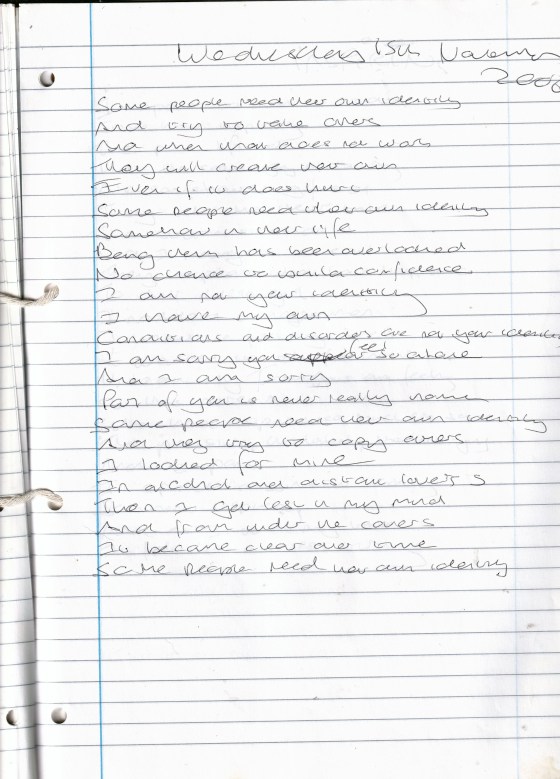 Wednesday 15th November
2006
Some people need their own identity
And try to take others
And when that does not work
They will create their own
Even if it does hurt
Some people need their own identity
Somehow in their life
Being them has been overlooked
No chance to build confidence
I am not your identity
I have my own
Conditions and disorders are not your identity
I am sorry you feel so alone
And I am sorry
Part of you is never really home
Some people need their own identity
And they try to copy others
I looked for mine
In alcohol and distant lovers
Then I got lost in my mind
And from under the covers
It became clear over time
Some people need their own identity